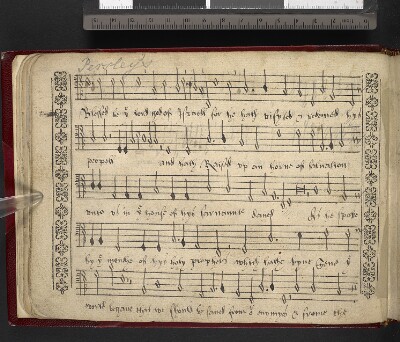 Parsley's
Blessed be yᵉ lord god of Israell for he hath visyted & redemed hys
people and hath Raysed vp an horne of salvation
unto vs in yᵉ house of hys servaunte david As he spake
by yᵉ mouthe of hys holy prophets which hathe byne sence yᵉ
world began that we should be saved from oʳ enemyes & frome the